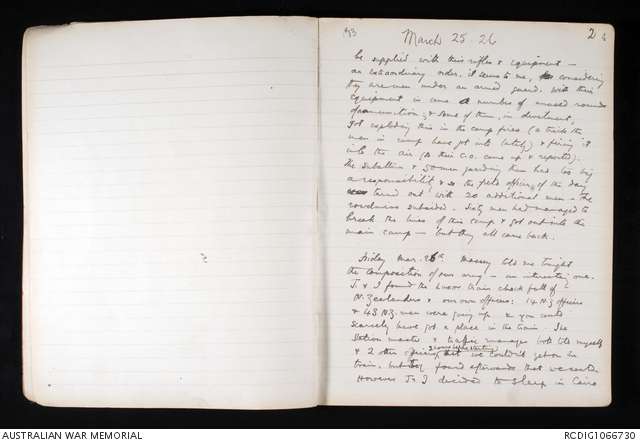 March 25.26
2
be supplied with their rifles & equipment –
an extraordinary order, it seems to me, considering
they are men under an armed guard. With their
equipment in came a number of unused rounds
of ammunition; & some of them, in devilment,
got exploding this in the camp fires (a trick the
men in camp have got into lately) & firing it
into the air (so their C.O. came up & reported).
The subaltern & 50 men guarding them had too big
a responsibility & so the field officer of the day
turned out with 20 additional men – the
rowdiness subsided. Sixty men had managed to
break the lines of this camp & got outside the
main camp – but they all came back.
Friday Mar. 26th. Massey told me tonight
the composition of our army – an interesting one.
J. & I found the Luxor train chock full of
N. Zealanders & our own officers: 14 N.Z officers
& 43 N.Z. men were going up & you could
scarcely have got a place in the train. The
Station master & traffic manager both told myself
& 2 other officers that we couldn't get on the
train, but I found afterwards that we could.
However J & I decided to sleep in Cairo
AUSTRALIAN WAR MEMORIAL
RCDIG1066730